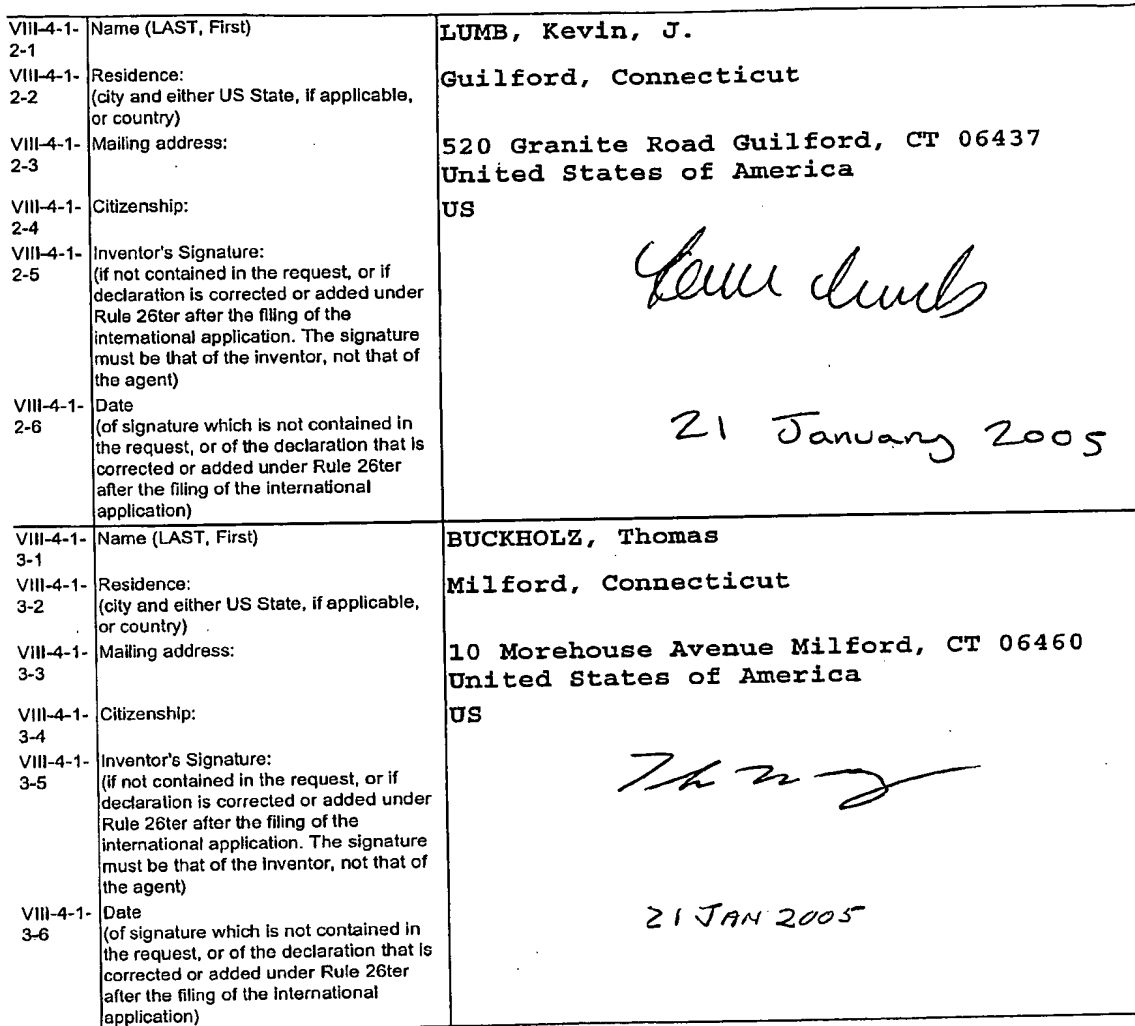 VIII-4-1-2-1 Name (LAST, First) LUMB, Kevin, J.
VIII-4-1-2-2 Residence: Guilford, Connecticut
(city and either US State, if applicable,
or country)
VIII-4-1-2-3 Mailing address: 520 Granite Road Guilford, CT 06437
United States of America
VIII-4-1-2-4 Citizenship: US
VIII-4-1-2-5 Inventor's Signature:
(if not contained in the request, or if
declaration is corrected or added under
Rule 26ter after the filing of the
international application. The signature
must be that of the inventor, not that of
the agent)
VIII-4-1-2-6 Date 21 January 2005
(of signature which is not contained in
the request, or of the declaration that is
corrected or added under Rule 26ter
after the filing of the international
application)
VIII-4-1-3-1 Name (LAST, First) BUCKHOLZ, Thomas
VIII-4-1-3-2 Residence: Milford, Connecticut
(city and either US State, if applicable,
or country)
VIII-4-1-3-3 Mailing address: 10 Morehouse Avenue Milford, CT 06460
United States of America
VIII-4-1-3-4 Citizenship: US
VIII-4-1-3-5 Inventor's Signature:
(if not contained in the request, or if
declaration is corrected or added under
Rule 26ter after the filing of the
international application. The signature
must be that of the inventor, not that of
the agent)
VIII-4-1-3-6 Date 21 JAN 2005
(of signature which is not contained in
the request, or of the declaration that is
corrected or added under Rule 26ter
after the filing of the international
application)